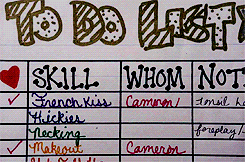 To Do List
SKILL WHOM NOT
French Kiss Cameron tonsil h
Hickies
Necking foreplay/
Makeout Cameron